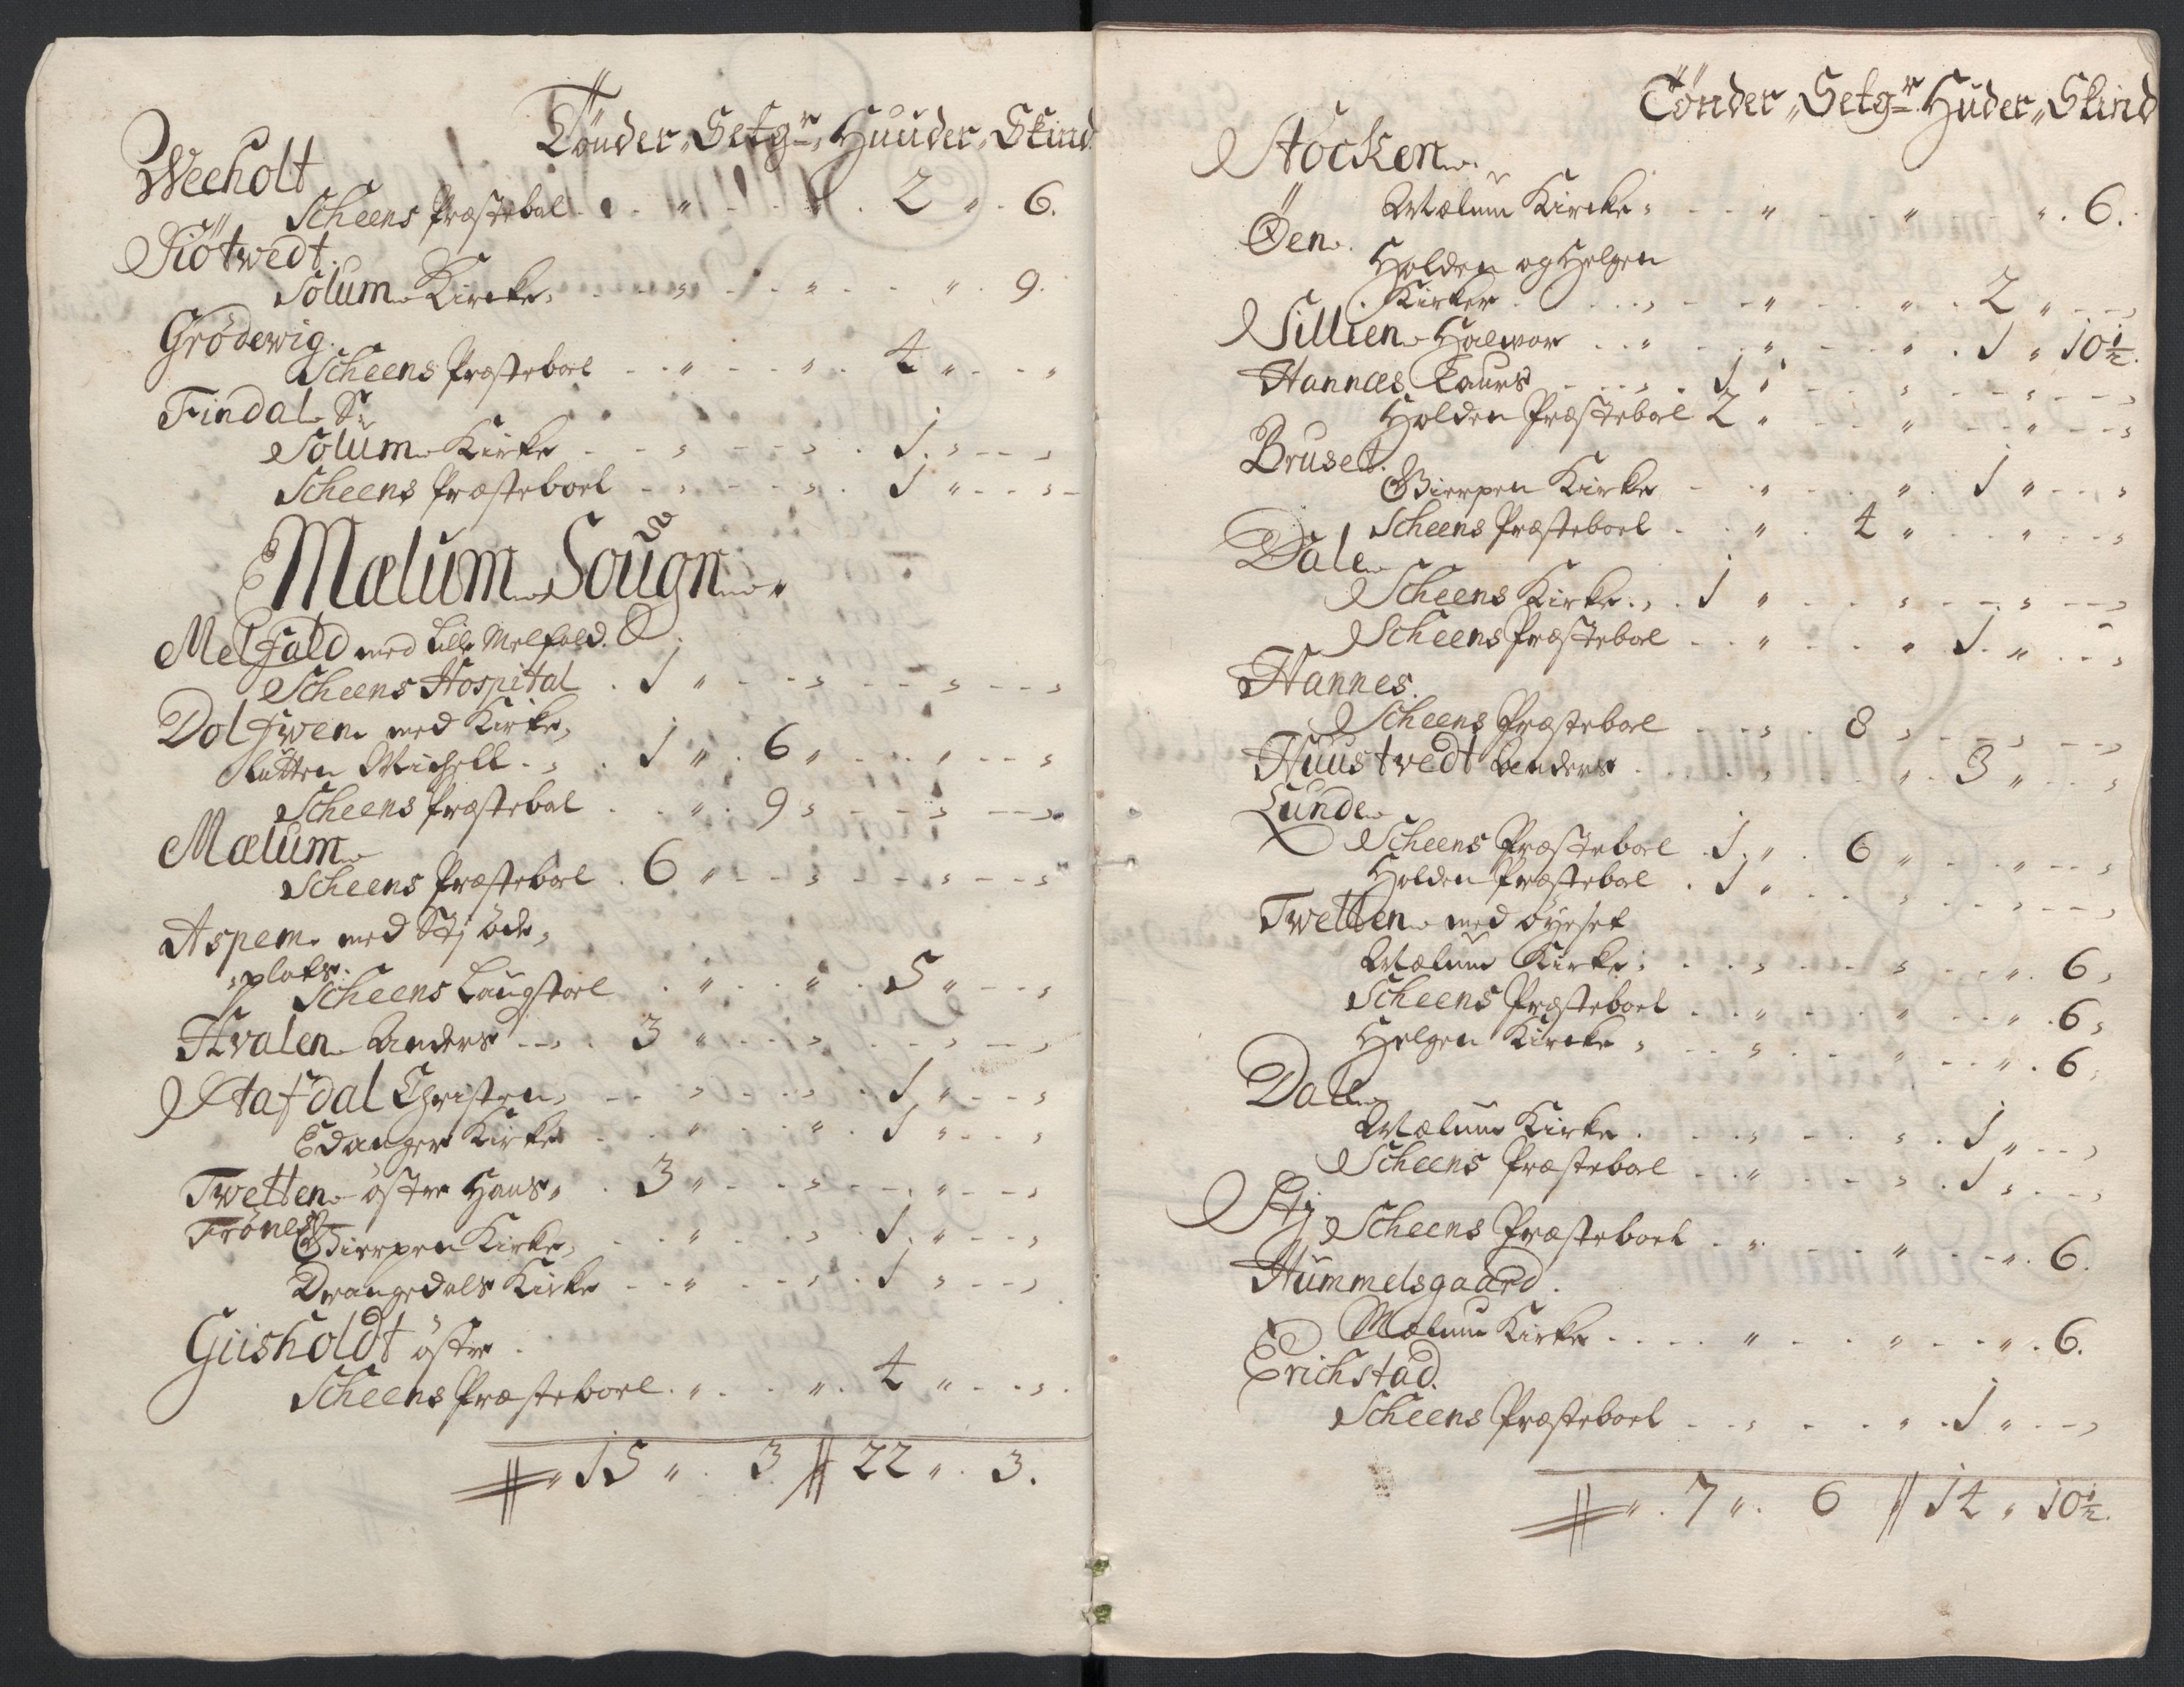 Tönder „ Setgr „ Huuder „ Skind
Weeholt
Scheens Præstebol . „ . . „ . 2 „ . 6.
Siötwedt.
Solum Kircke, . . „ . . „ . . „ . 9.
Grödewig.
Scheens Præsteboel . . „ . . „ . 4 „ . . „
Findal Sr
Solum Kirke . . „ . . „ . 1 . „ . . „
Scheens Præsteboel . . „ . . „ . 1 „ . . „
Mælum Sougn
Melfald med Lille Melfald.
Scheens Hospital . 1 „ . . „ . . „ . . „
Dolfwen med Kirke,
Rutten Michell . „ . 1 „ . 6 „ . . „ . . „
Scheens Præstebol . . „ . 9 „ . . „ . . „
Mælum
Scheens Præsteboel . 6 „ . . „ . . „ . . „
Aspem med Stj öde,
plats.
Scheens Laugstoel . „ . . „ . 5 „ . . „
Hvalen Anders . . 3 „ . . „ . . „ . . „
Stafdal Christen, . . „ . . „ . 1 „ . . „
Edanger Kirke . . „ . . „ . 1 „ . . „
Twetten östre Hans, . 3 „ . . „ . . „ . . „
Trönes
Gierpen Kirke, . . „ . . „ . 1 „ . . „
Drangedals Kirke . . „ . . „ . 1 „ . . „
Giisholdt östre .
Scheens Præsteboel . „ . . „ . 4 „ . . „
„ 15 „ . 3 // 22 „ . 3.
Tönder „ Setgr „ Huder „ Skind
Stocken
Mælum Kircke, . . „ . . „ . . „ . 6.
Öen.
Holden og Helgen
Kirker . . . „ . . „ . . „ . 2 „ . . „
Sillien Halvor . . „ . . „ . . „ . 1 „ 10½.
Hannæs Laurs . . „ . 1 „ . . „ . . „ . . „
Holden Præsteboel 2 „ . . „ . . „ . . „
Bruset.
Gierpen Kirke . . „ . . „ . 1 „ . . „
Scheens Præsteboel . . „ . 4 „ . . „ . . „
Dale
Scheens Kirke . „ . 1 „ . . „ . . „ . . „
Scheens Præsteboel . . „ . . „ . 1 . „ . . „
Hannes.
Scheens Præsteboel . . „ . 8 „ . . „ . . „
Huustvedt Anders . . . „ . . „ . 3 „ . . „
Lunde
Scheens Præsteboel . 1 . „ . 6 „ . . „ . . „
Holden Præsteboel . 1 „ . . „ . . „ . . „
Twetten med Öyeset
Mælum Kirke, . . „ . . „ . . „ . 6 „
Scheens Præsteboel . . „ . . „ . . „ . 6 „
Helgen Kircke „ . . „ . . „ . . „ . 6 „
Dale
Mælum Kirke . . . „ . . „ . 1 „ . . „
Scheens Præsteboel . . „ . . „ . 1 „ . . „
Stj
Scheens Præsteboel . „ . . „ . . „ . 6.
Hummelsgaard .
Mælum Kirke . . . . „ . . „ . . „ . 6.
Erichstad.
Scheens Præsteboel . . „ . . „ . 1 „ . . „
„ . 7 „ . 6 // 14 „ 10½.